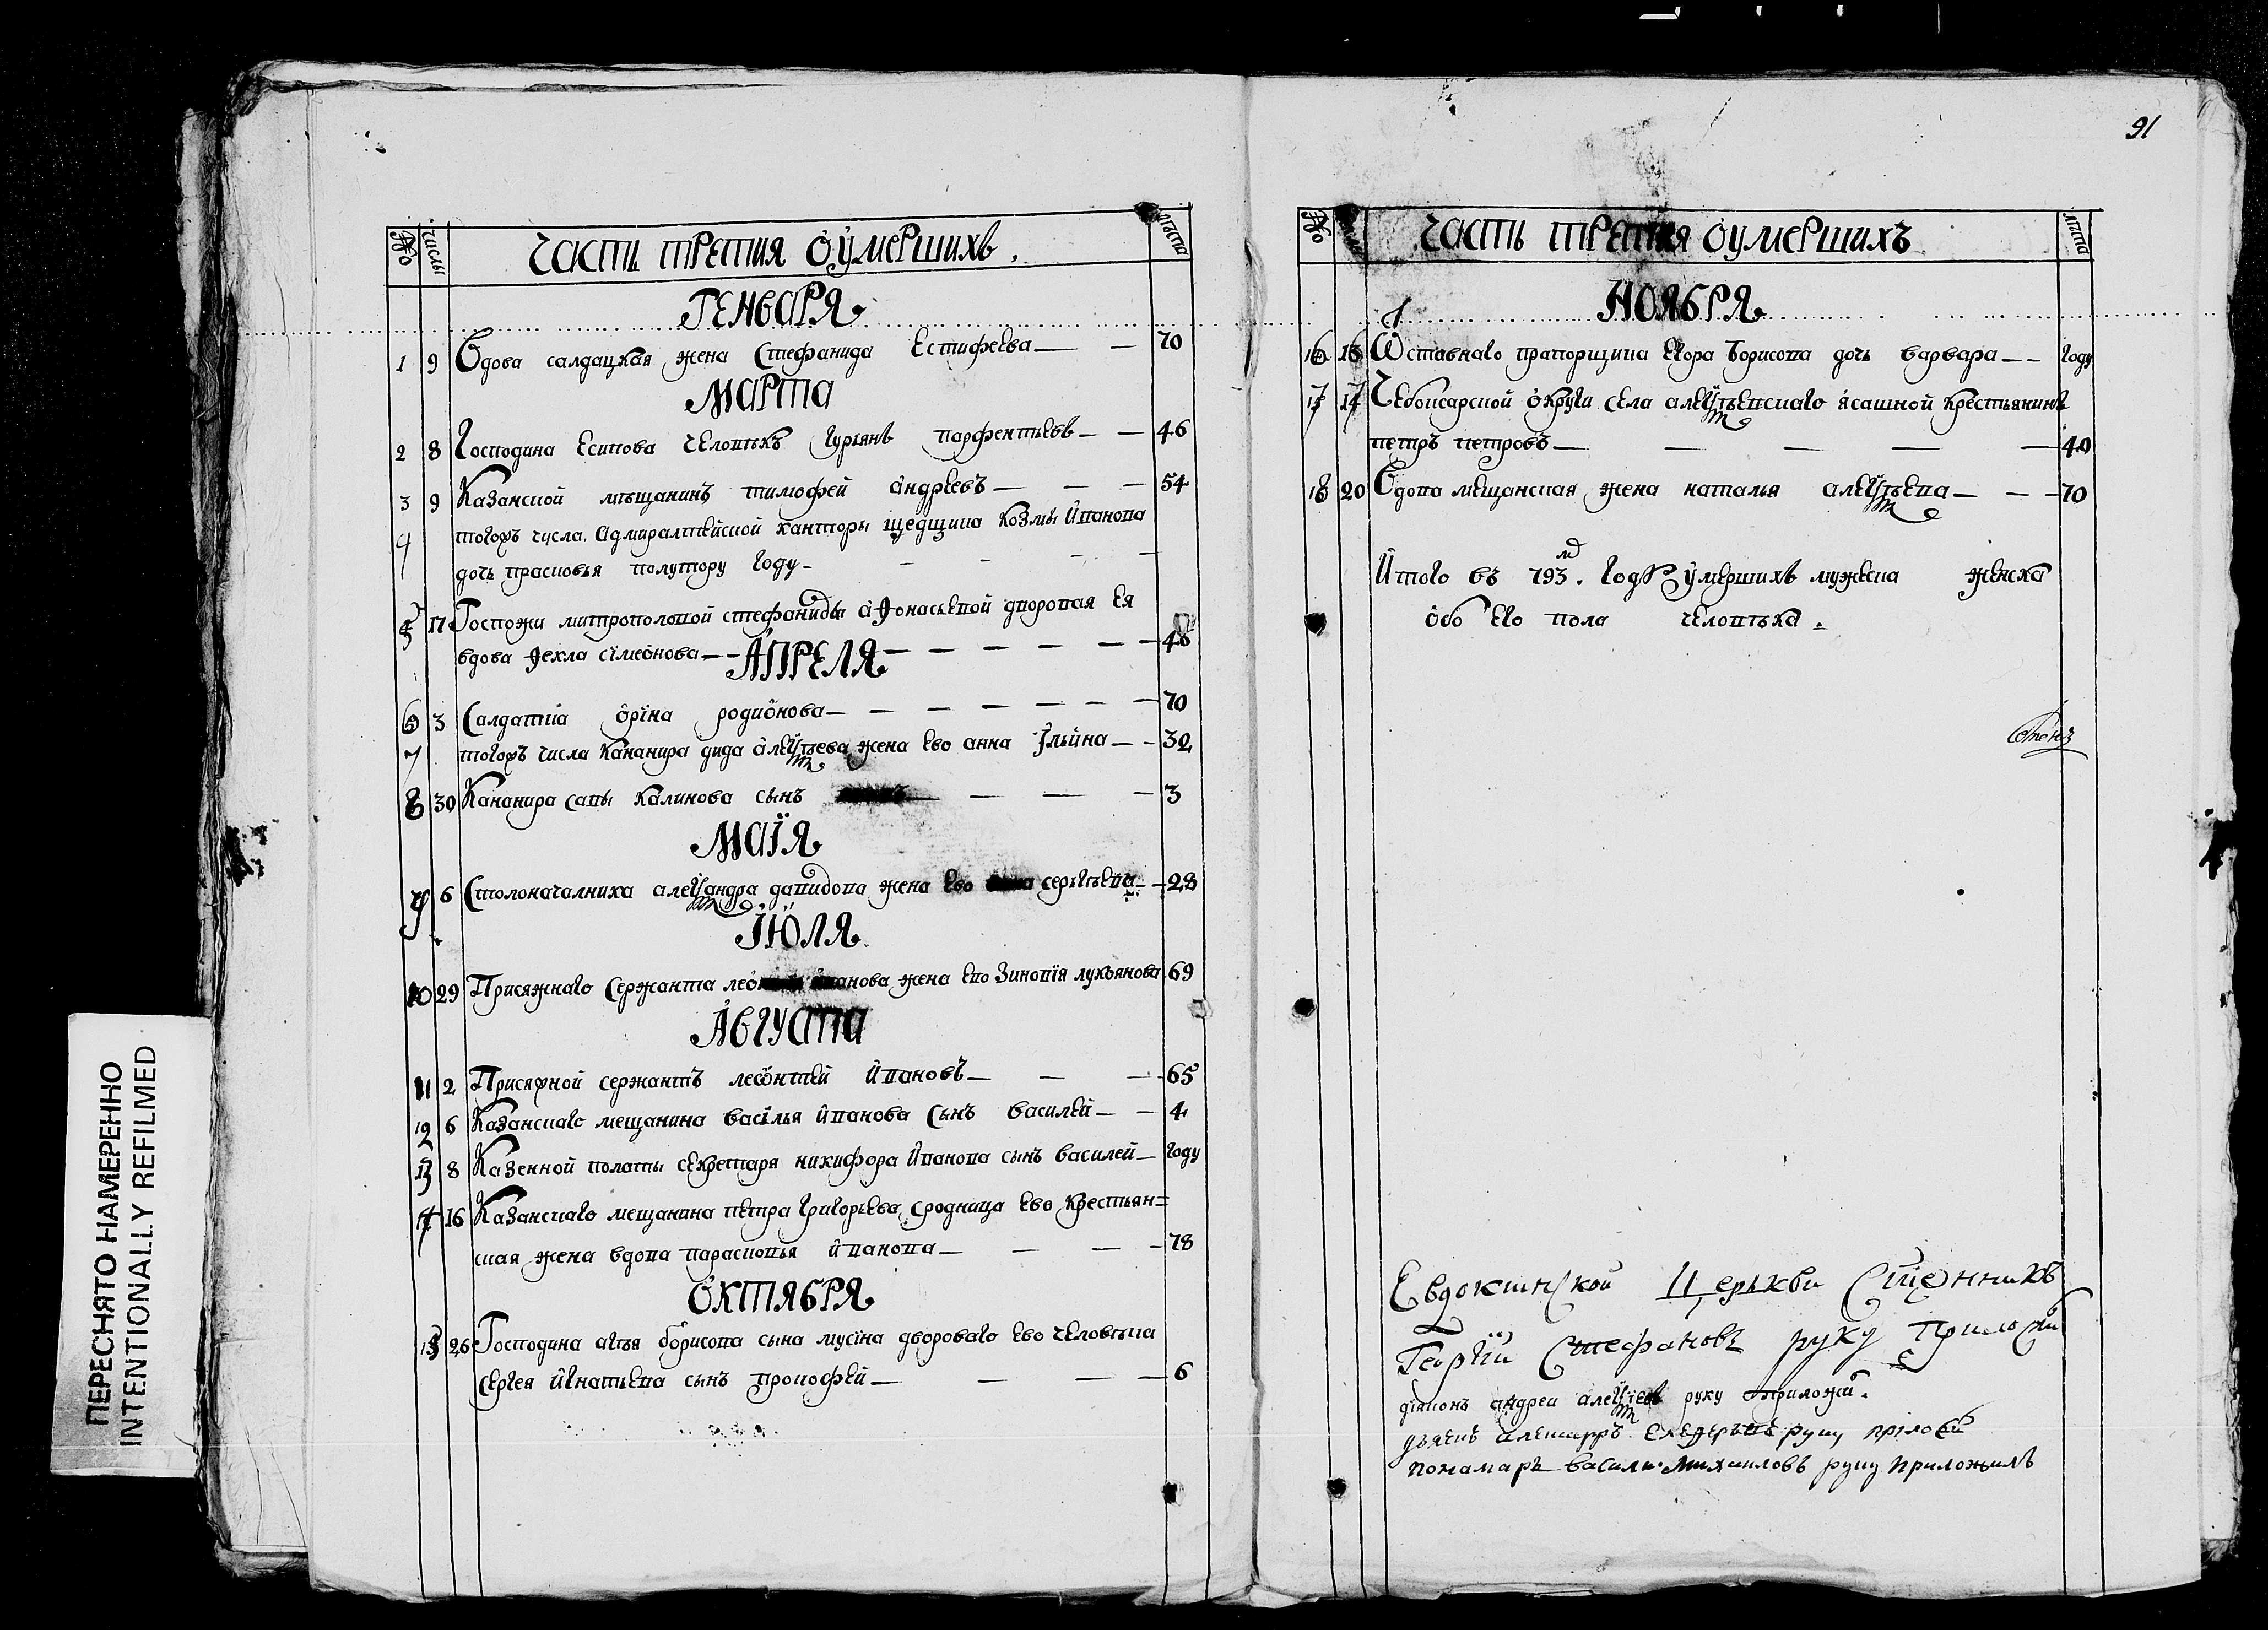 91
№ числы ЧАСТЬ ТРЕТИЯ О УМЕРШИХЪ. лѣта
ГЕНВАРЯ
1 9 Вдова салдацкая жена Стефанида Естифеева — — 70
МАРТА
2 8 Господина Есипова человѣкъ Гурьянъ парфентьевъ — — 46
3 9 Казанской мѣщанинъ тимофей андреевъ — — — 54
4 тогожъ числа. Адмиралтейской канторы Козмы Иванова
дочь прасковья полутору году —
5 17 Госпожи митрополовой стефаниды афонасьевой дворовая ея
вдова Ѳекла симеонова — — — — — — 40
АПРЕЛЯ
6 3 Салдатка орина родионова — — — — — — 70
7 тогожъ числа Кананира дида алеѯѣева жена ево анна Ильина — — 32
8 30 Кананира савы калинова сынъ — — — 3
МАІЯ
9 6 Столоначалника алеѯандра давидова жена ево сергѣева — — 28
ІЮЛЯ
10 29 Присяжнаго Сержанта жена ево Зиновия лукоянова 69
АВГУСТА
11 2 Присяжной сержантъ леонтей Ивановъ — — — 65
12 6 Казанскаго мещанина василья иванова Сынъ василей — — 4
13 8 Казенной полаты секретаря никифора Иванова сынъ василей — году
14 16 Казанскаго мещанина петра Григорьева сродница ево крестьян=
ская жена вдова парасковья иванова — — — 78
ОКТЯБРЯ
15 26 Господина агѣя борисова сына мусина двороваго ево человѣка
сергея игнатьева сынъ прокофей — — — — 6
№ ЧАСТЬ ТРЕТИЯ О УМЕРШИХЪ лѣта
НОЯБРЯ
16 13 Ѿставнаго прапорщика Егора борисова дочь варвара — — году
17 14 Чебоксарской округи села алеѯѣевскаго ясашной крестьянинъ
петръ петровъ — — — — — 40
18 20 Вдова мещанская жена наталья алеѯѣева — — — 70
Итого въ 793м. году умершихъ мужеска женска
обоего пола человѣка.
Евдокинской Церькви Сщенникъ
Георгій Стефановъ руку приложи
діяконъ андреи алеѯіевъ руку приложи.
дьячекъ руку приложи
понамарь васили Михаиловъ руку приложилъ
ПЕРЕСНЯТО НАМЕРЕННО
INTENTIONALLY REFILMED